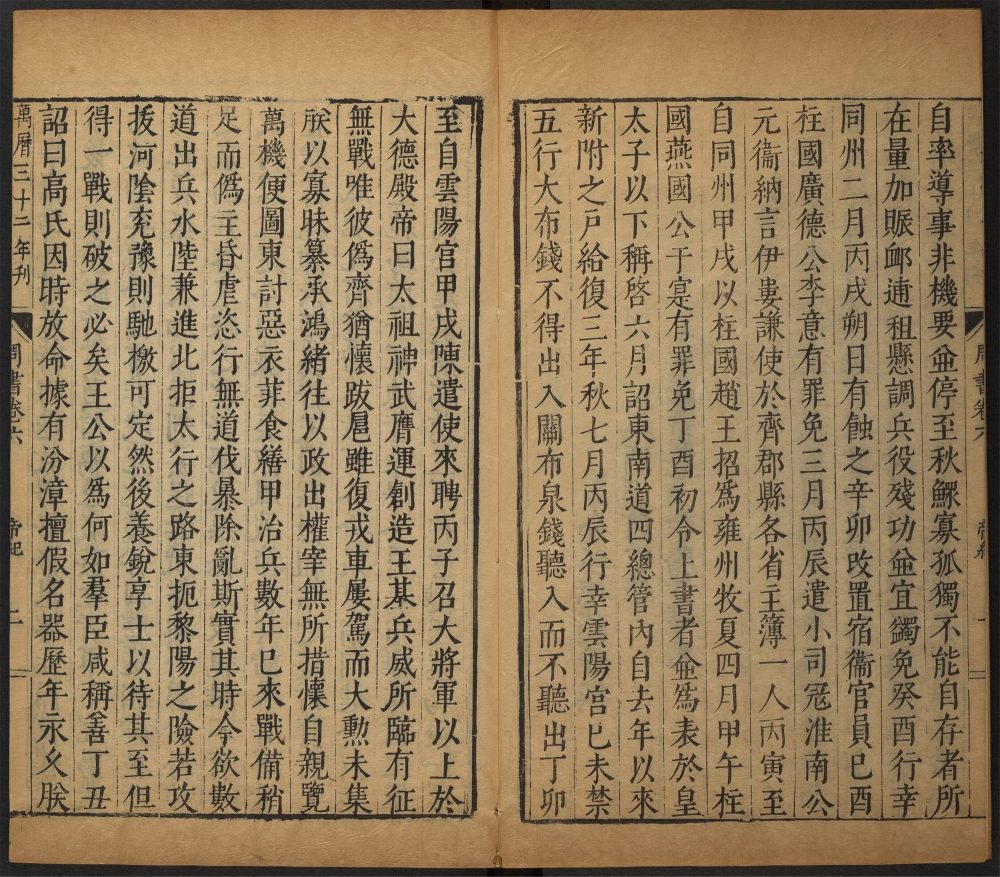 自率導事非機要並停至秋鰥寡孤獨不能自存者所
在量加賑卹逋租懸調兵役殘功並宜蠲免癸酉行幸
同州二月丙戌朔日有蝕之辛卯改置宿衞官員巳酉
柱國廣德公李意有罪免三月丙辰遣小司冦淮南公
元衞納言伊婁謙使於齊郡縣各省主簿一人丙寅至
自同州甲戌以柱國趙王招爲雍州牧夏四月甲午柱
國燕國公于寔有罪免丁酉初令上書者並爲表於皇
太子以下稱啓六月詔東南道四總管內自去年以來
新附之戸給復三年秋七月丙辰行幸雲陽宮巳未禁
五行大布錢不得出入關布泉錢聽入而不聽出丁卯
至自雲陽宮甲戌陳遣使來聘丙子召大將軍以上於
大德殿帝曰太祖神武膺運創造王基兵威所臨有征
無戰唯彼僞齊猶懷跋扈雖復戎車屢駕而大勲未集
朕以寡昧纂承鴻緒往以政出權宰無所措懷自親覽
萬機便圖東討惡衣菲食繕甲治兵數年巳來戰備稍
足而僞主昏虐恣行無道伐暴除亂斯實其時今欲數
道出兵水陸兼進北拒太行之路東扼黎陽之險若攻
拔河陰兖豫則馳檄可定然後養銳享士以待其至但
得一戰則破之必矣王公以爲何如羣臣咸稱善丁丑
詔曰高氏因時放命據有汾漳擅假名器歷年永久朕
萬曆三十二年刋
周書卷六 帝紀 二